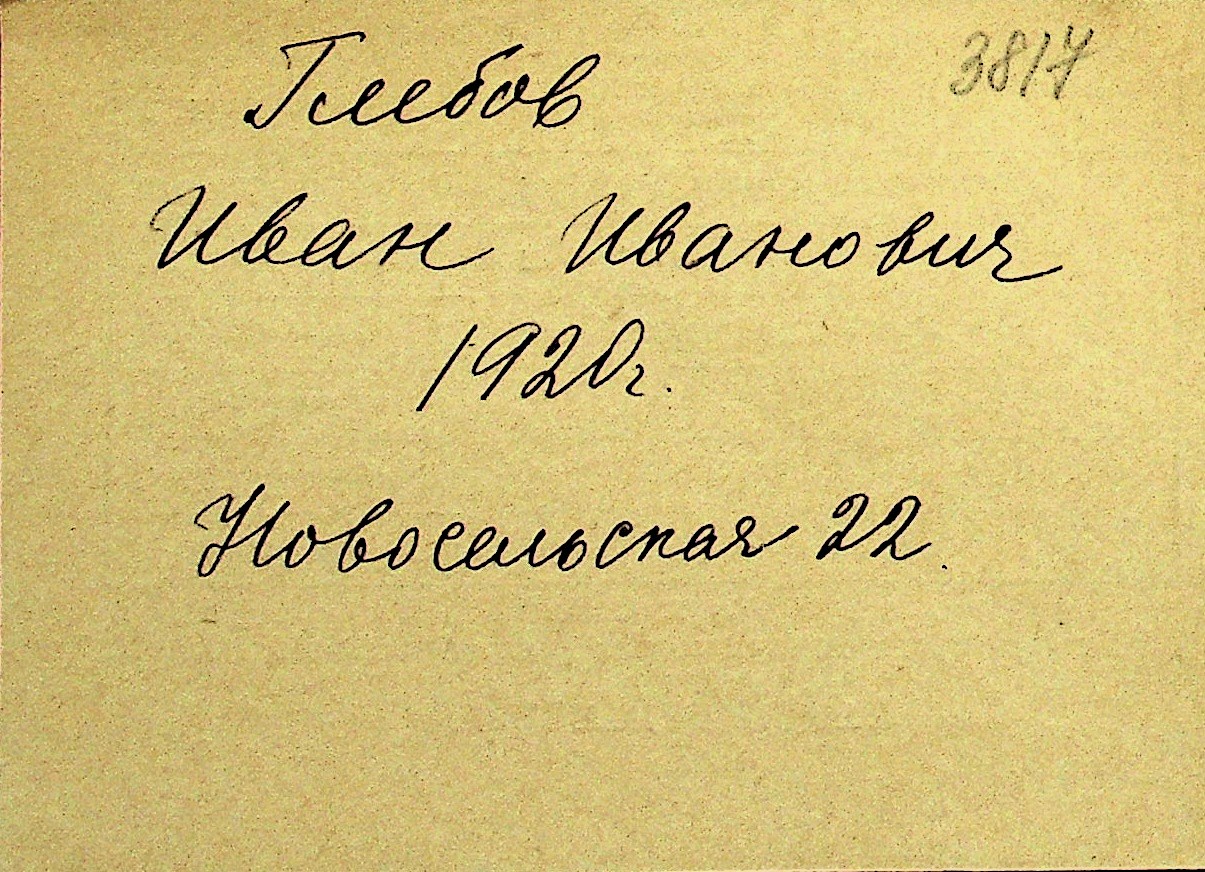 3817
Глебов
Иван Иванович
1920г.
Новосельская 22.